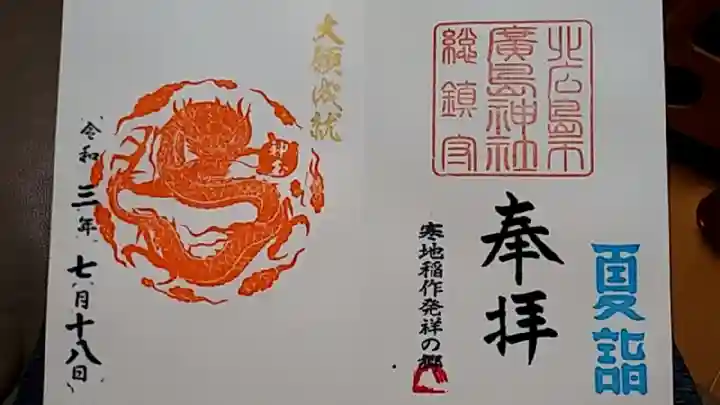 夏詣
北広島市
廣島神社
総鎮守
奉拝
寒地稲作発祥の郷
大願成就
神玉
令和三年七月十八日